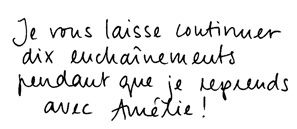 Je vous laisse continuer
dix enchaînements
pendant que je reprends
avec Amélie !